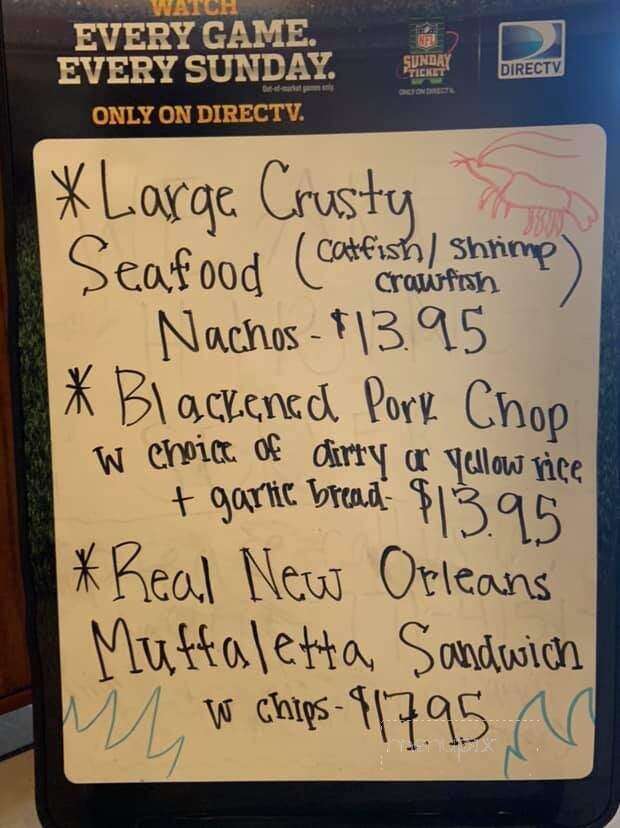 WATCH
EVERY GAME.
EVERY SUNDAY.
Out-of-market games only.
ONLY ON DIRECTV.
NFL
SUNDAY
TICKET
ONLY ON DIRECTV.
DIRECTV
*Large Crusty
Seafood (catfish/shrimp
crawfish)
Nachos - $13.95
* Blackened Pork Chop
w choice of dirty or yellow rice
+ garlic bread - $13.95
*Real New Orleans
Muffaletta Sandwich
w chips - $17.95
menupix